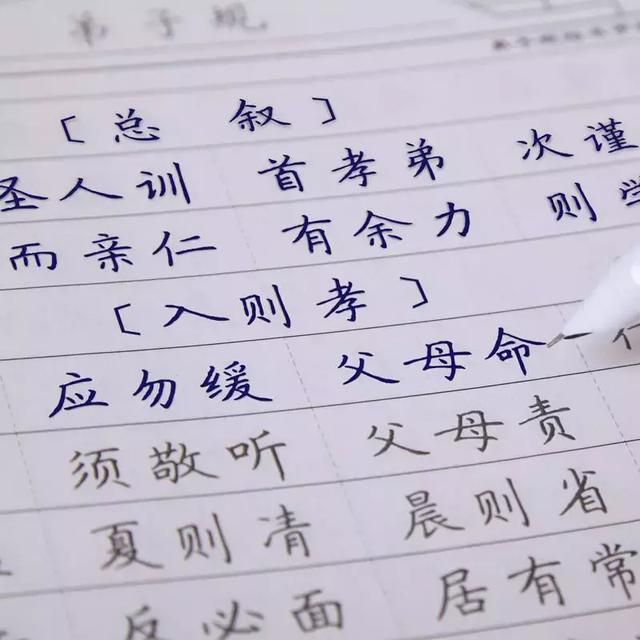 弟子规
［总 叙］
圣人训 首孝弟 次谨
而亲仁 有余力 则学
［入则孝］
应勿缓 父母命
须敬听 父母责
夏则清 晨则省
反必面 居有常